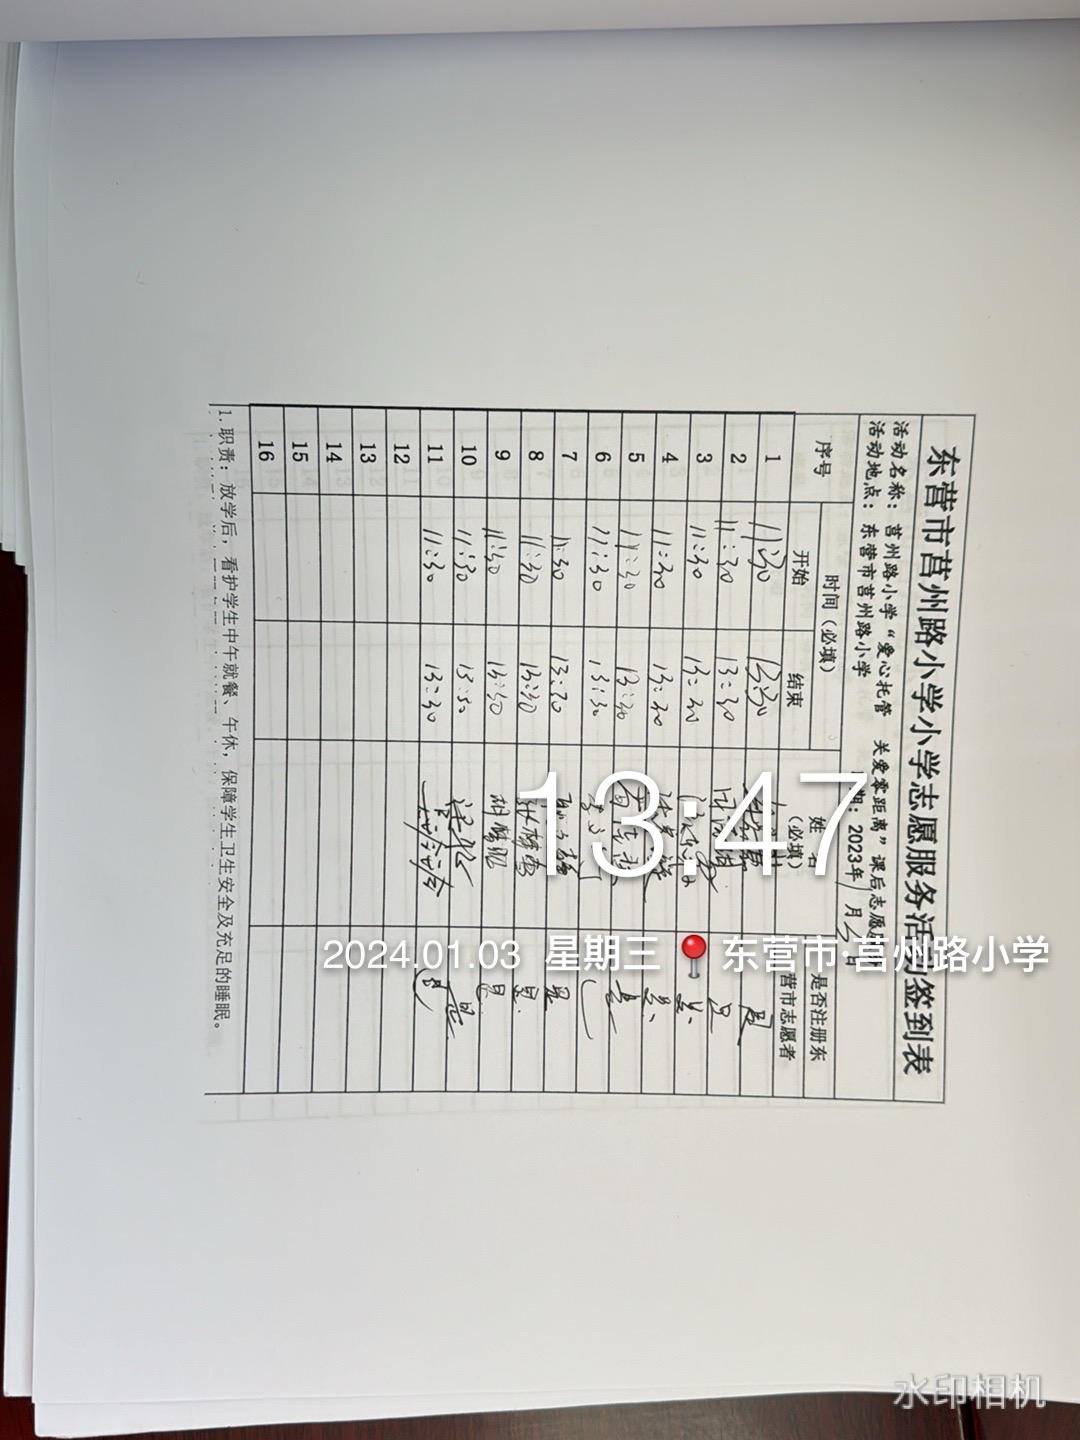 东营市莒州路小学小学志愿服务活动签到表
活动名称：莒州路小学“爱心托管 关爱零距离”课后志愿服
活动地点：东营市莒州路小学 期：2023年1月3日
序号 时间（必填） 姓名（必填） 是否注册东营市志愿者
开始 结束
1 11:30 13:30 是
2 11:30 13:30 是
3 11:30 13:30 是
4 11:30 13:30 是
5 11:30 13:30 是
6 11:30 13:30
7 11:30 13:30 是
8 11:30 13:30 张梅雪 是
9 11:30 13:30 胡晓昆 是
10 11:30 13:30 是
11 11:30 13:30 是
12
13
14
15
16
1. 职责：放学后，看护学生中午就餐、午休，保障学生卫生安全及充足的睡眠。
13:47
2024.01.03 星期三 东营市·莒州路小学
水印相机